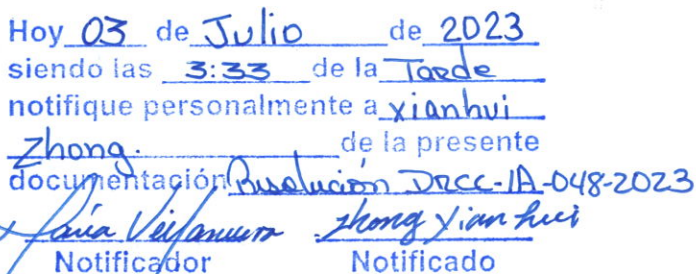 Hoy 03 de Julio de 2023
siendo las 3:33 de la Tarde
notifique personalmente a xianhui
Zhong. de la presente
documentación Resolución DRCC-IA-048-2023
María Zhong Xian hui
Notificador Notificado